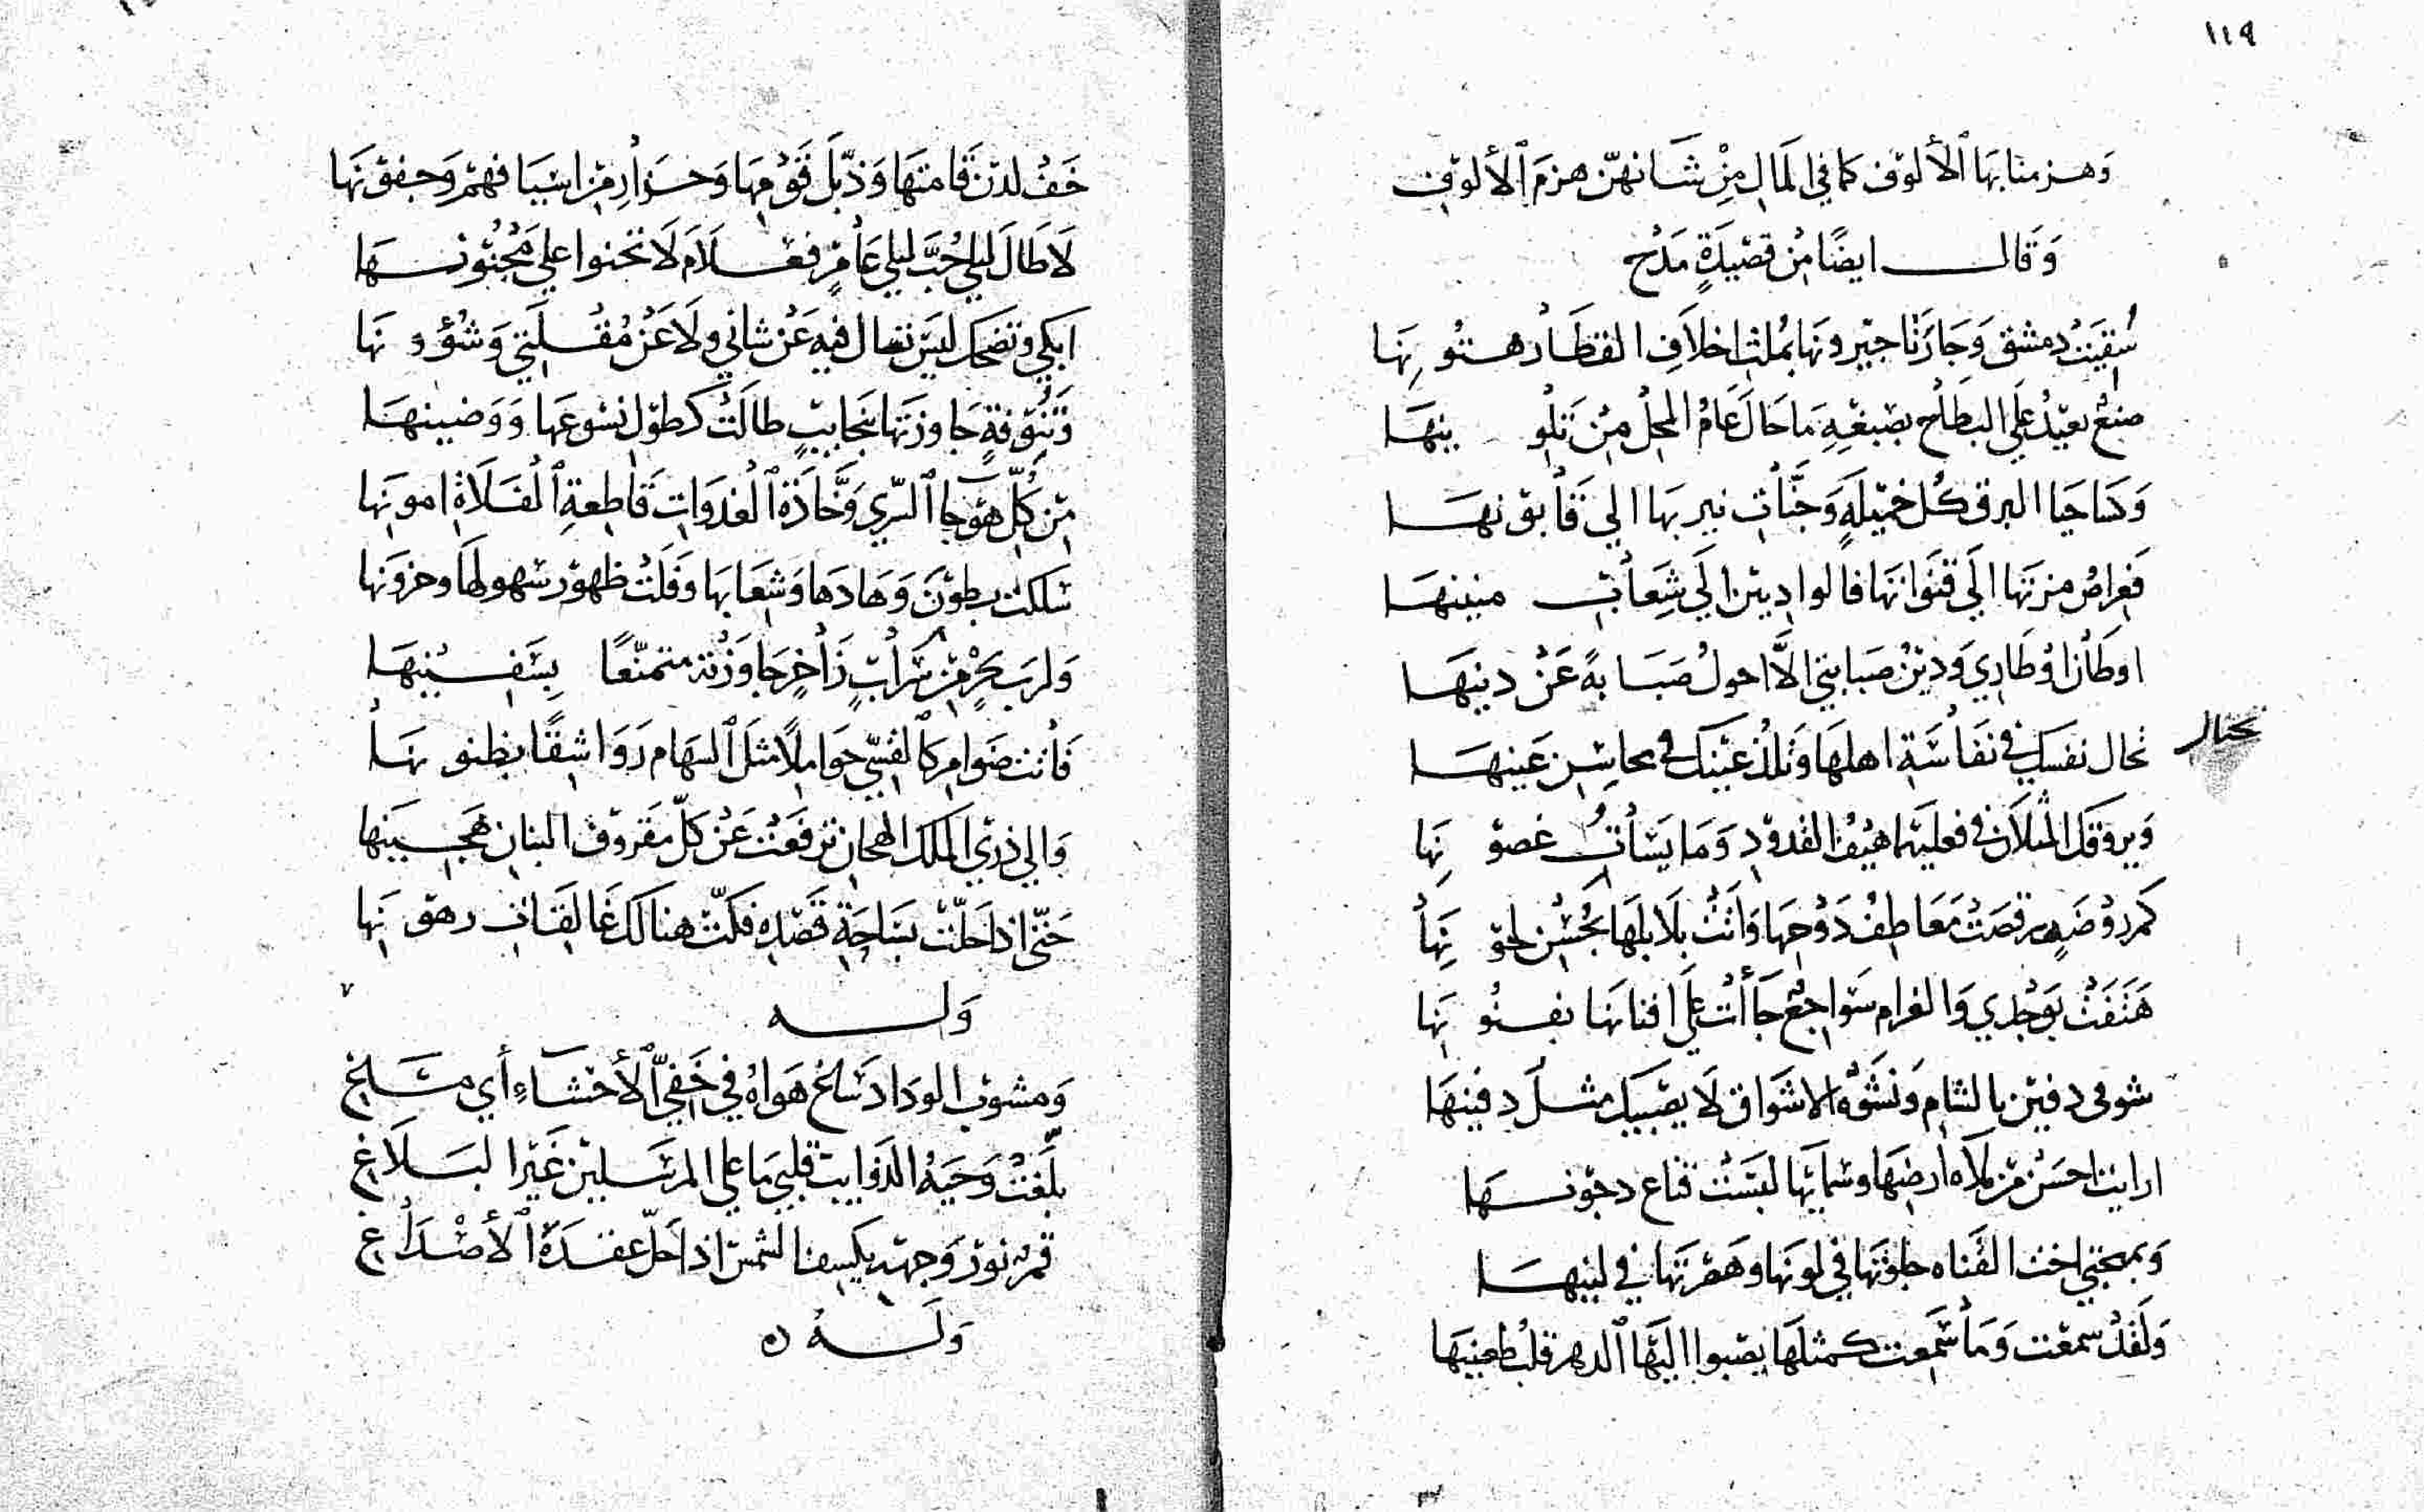 ١٤٩
وَهزمنا بهَا ٱلألوف كما في المَال مِنْ شَانهنّ هزمَ ٱلألوفِ
وَقَال ايضًا مِنْ قصِيدَةٍ مَدْح
سُقِيَتْ دمشق وَجَازَنَا جيرونهَا بمُلثِ اخلاَفِ القطَار هتُونِهَا
صنعٌ يعيدُ علَى البطاح بصبغِهِ مَا حَالَ عَامُ المحل مِنْ تَلْوينهَا
وَكسَا حيَا البرق كل خميلَةٍ وَجَنَابِ نيربهَا الى قَابونهَا
فعِراصُ مزتهَا الَى قنَوَاتهَا فالواديين الَى شِعَابِ منينهَا
اوطَان اوْطَاري وَدينُ صبَابتي الاَّ احولُ صَبَابةً عَنْ دينهَا
تحال نفسك في نفَاسَةِ اهلهَا وَتلذ عينك في محاسِن عَينهَا
تحتال
وَيروقكَ المثلاَن في فعليهمَا هيفُ القدودِ وَمَايسَاتُ غصونِهَا
كم روْضَةٍ رقصَتْ مَعَاطِفُ دَوْحِهَا وَاتَتْ بلَابلهَا بحُسْن لحونِهَا
هَتَفَتْ بوَجْدي وَالغرام سَواجعٌ جَاءَتْ علَى افنانهَا بفنُونِهَا
شوقى دفين بالشام وَنشوَة الاشوَاق لَا يصْبيك مثل دفينهَا
ارايت احسَنَ من مُلاَه ارضِهَا وسمَايهَا لبسَتْ قناع دجونهَا
وَبمهجتي اخت القَنَاه حلوتهَا في لونهَا وَهَمزتهَا في لينهَا
وَلَقَدْ سمعْت وَمَا سَمِعت كمثلهَا يصْبوا اليهَا ٱلدهر قلب طعينهَا
خَفْ لدْنَ قَامتهَا وَذبّلَ قَوْمِهَا وَحذَارِ مِنْ اسْيَافهمْ وَجفونهَا
لاَ طَالَ ليلي حُبَّ ليلى عَامرٍ فعَلاَمَ لاَ تحنوا علَى مَجْنُونهَا
ابكي وتضحك ليسَ تسَال فيه عَنْ شاني ولاَ عَنْ مُقْلَتي وَشُؤونهَا
وَتنُوفةٍ جَاوزتهَا بنجَايبٍ طالَتْ كطوْل نسُوعهَا وَوَضينهَا
مِنْ كلّ هوْجا ٱلسّري وَخّاذَة ٱلغدَوَاتِ قَاطعةِ ٱلفَلاَةِ امونِهَا
سَلكت بطُونَ وَهَادهَا وَشِعَابهَا وَفَلَتْ ظهورَ سهولهَا وحزونهَا
وَلربَ بحْرٍ مِنْ سَرابٍ زَاخِرٍ جَاوَزْته متمنّعًا بِسَفينهَا
فَاتت ضوَامر كَٱلقسِّي حوَاملًا مثلَ ٱلسهَام رَوَاشِقًا بظنونهَا
وَالي ذري المَلك الهجان ترفعَتْ عَنْ كلّ مقرُوفِ البنانِ هَجينهَا
حَتّى اذا حَلّت بسَاحَةِ قَصْدِهِ فكّت هنالك غَالقَاتِ رهونِهَا
٧
وَله
وَمشوْبِ الودَاد سَاغَ هَوَاهُ في خَفِيِّ ٱلأحْشَاءِ أَي مسَاغِ
بلَّغَتْ وَحيَهُ الذوَايبُ قلبي مَا على المرسَلين غَيْرَ البَلاَغِ
قمرٌ نورُ وَجهِهِ يكسِف الشمسَ اذا حَلّ عقدَةَ ٱلأصْدَاغِ
وَلَهُ ه